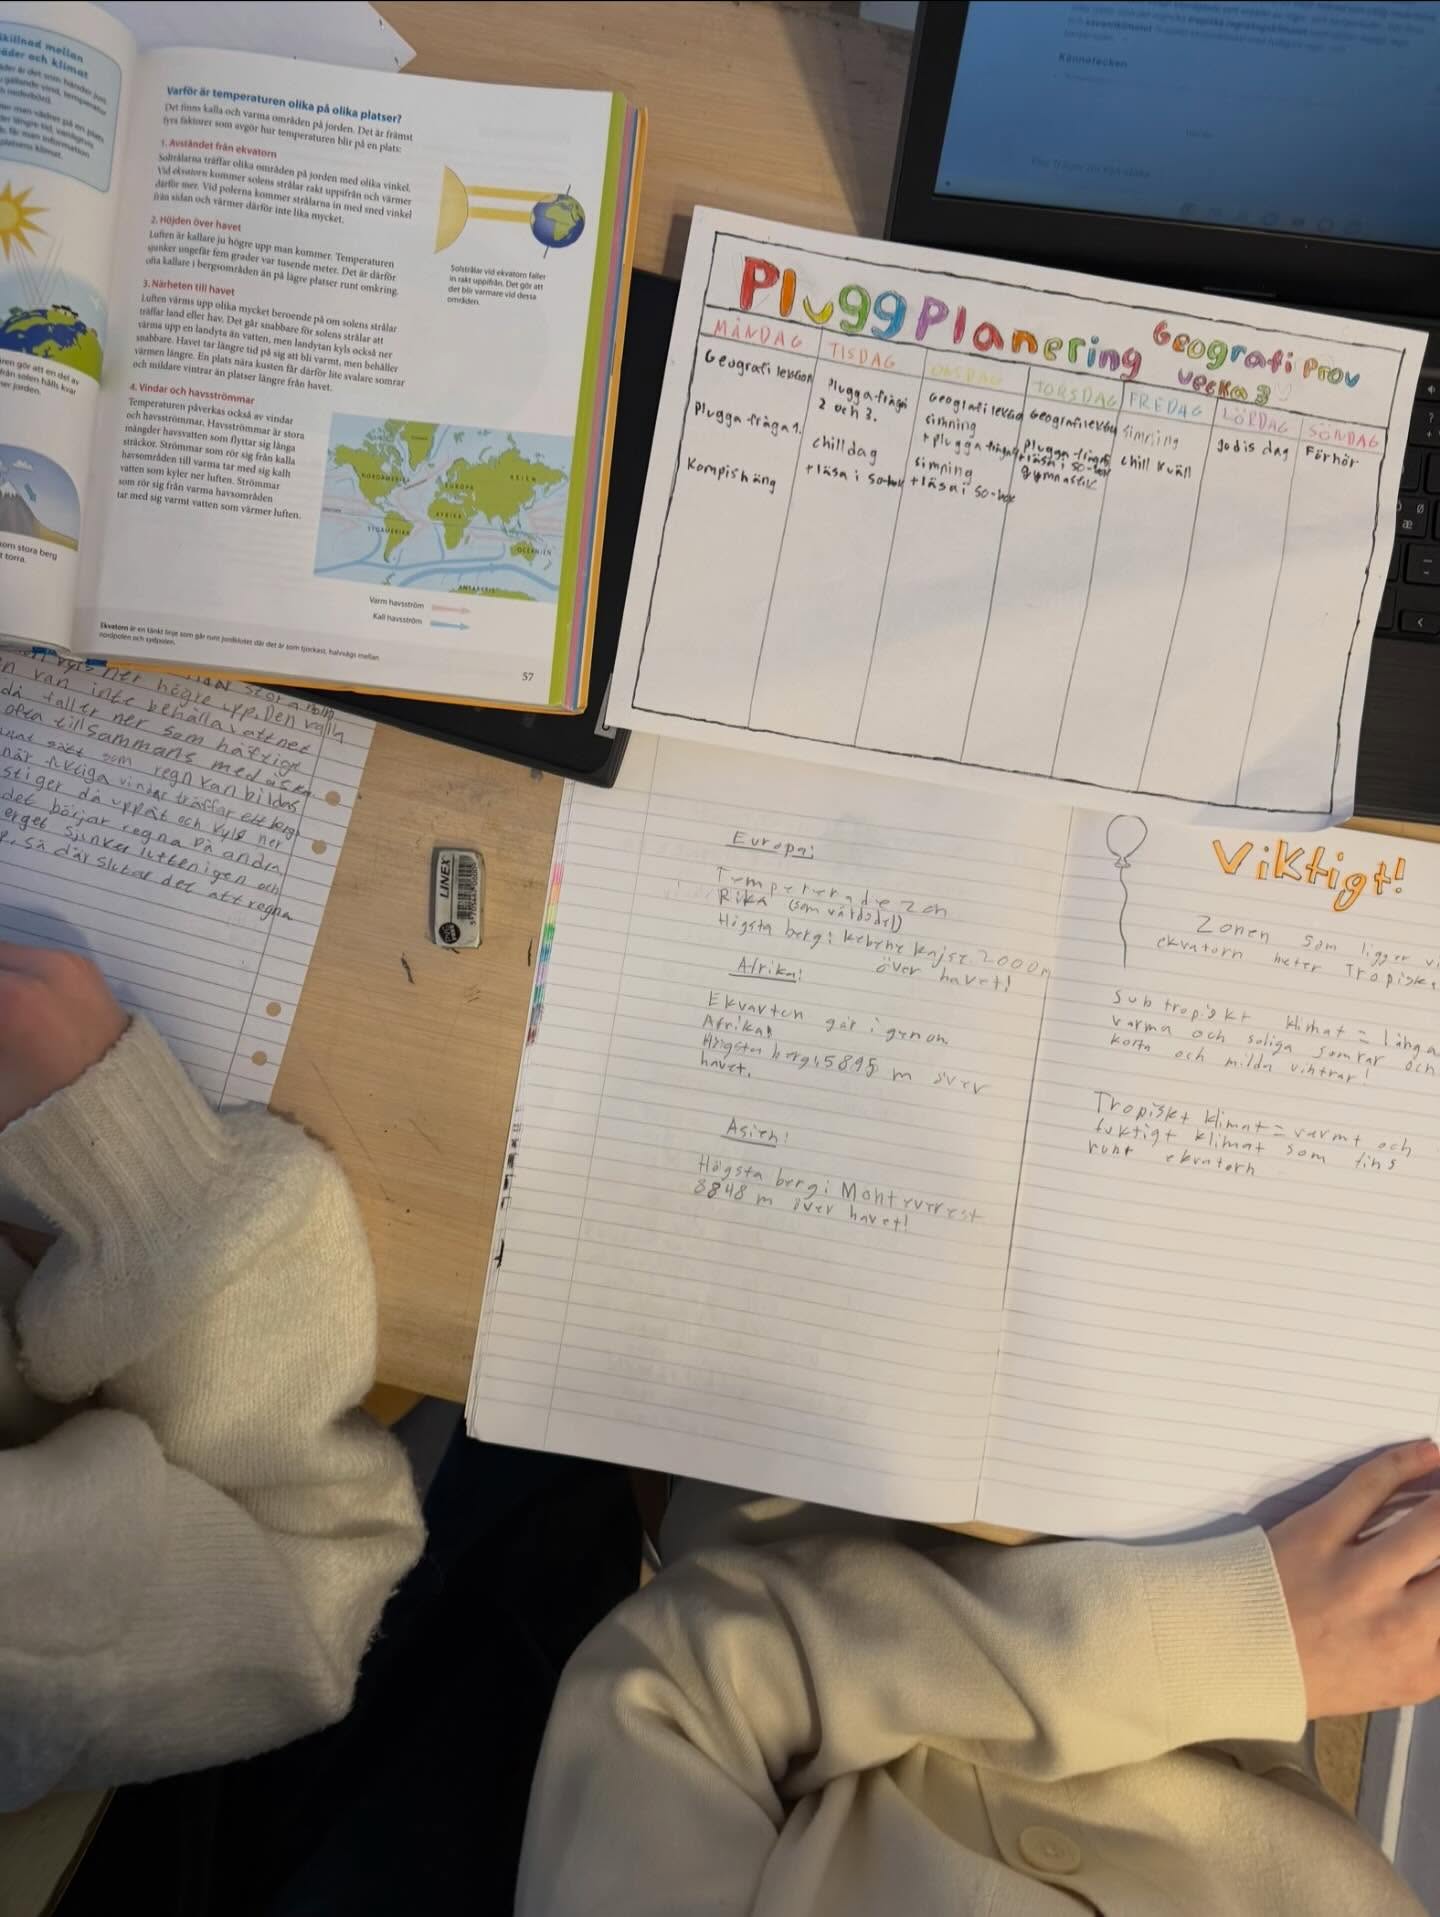 skillnad mellan
väder och klimat
Varför är temperaturen olika på olika platser?
Det finns kalla och varma områden på jorden. Det är främst
fyra faktorer som avgör hur temperaturen blir på en plats:
1. Avståndet från ekvatorn
Solstrålarna träffar olika områden på jorden med olika vinkel.
Vid ekvatorn kommer solens strålar rakt uppifrån och värmer
därför mer. Vid polerna kommer strålarna in med sned vinkel
från sidan och värmer därför inte lika mycket.
2. Höjden över havet
Luften är kallare ju högre upp man kommer. Temperaturen
sjunker ungefär fem grader var tusende meter. Det är därför
ofta kallare i bergsområden än på lägre platser runt omkring.
3. Närheten till havet
Luften värms upp olika mycket beroende på om solens strålar
träffar land eller hav. Det går snabbare för solens strålar att
värma upp en landyta än vatten, men landytan kyls också ner
snabbare. Havet tar längre tid på sig att bli varmt, men behåller
värmen längre. En plats nära kusten får därför lite svalare somrar
och mildare vintrar än platser längre från havet.
4. Vindar och havsströmmar
Temperaturen påverkas också av vindar
och havsströmmar. Havsströmmar är stora
mängder havsvatten som flyttar sig långa
sträckor. Strömmar som rör sig från kalla
havsområden till varma tar med sig kallt
vatten som kyler ner luften. Strömmar
som rör sig från varma havsområden
tar med sig varmt vatten som värmer luften.
Solstrålar vid ekvatorn faller
in rakt uppifrån. Det gör att
det blir varmare vid dessa
områden.
NORDAMERIKA
EUROPA
ASIEN
AFRIKA
SYDAMERIKA
OCEANIEN
ANTARKTIS
Varm havsström
Kall havsström
Ekvatorn är en tänkt linje som går runt jordklotet där det är som tjockast, halvvägs mellan
nordpolen och sydpolen.
57
som stora berg
t torra.
Kännetecken
Plugg Planering
Geografi Prov
vecka 3
MÅNDAG
Geografi lektion
Plugga fråga 1.
Kompishäng
TISDAG
Plugga fråga
2 och 3.
chill dag
+ läsa i so-bok
ONSDAG
Geografi lektion
simning
+ plugga fråga
simning
+ läsa i so-bok
TORSDAG
Geografi lektion
Plugga fråga
+ läsa i so-bok
gymnastik
FREDAG
simning
chill kväll
LÖRDAG
godis dag
SÖNDAG
Förhör
ner högre upp. Den kalla
kan inte behålla vattnet
då faller ner som häftiga
ofta tillsammans med åska.
sätt som regn kan bildas
när fuktiga vindar träffar ett berg
stiger då uppåt och kyls ner
det börjar regna på andra
berget sjunker luften igen och
så där slutar det att regna
LINEX
Europa:
Tempererade zon
Rika (som världsdel)
Högsta berg: kebnekajse 2000m
över havet!
Afrika!
Ekvartun går igenom
Afrika!
Högsta berg: 5895 m över
havet.
Asien!
Högsta berg: Mont everest
8848 m över havet!
Viktigt!
Zonen som ligger vi
ekvatorn heter Tropiska
Subtropiskt klimat = långa
varma och soliga somrar och
korta och milda vintrar!
Tropiskt klimat = varmt och
fuktigt klimat som fins
runt ekvatorn